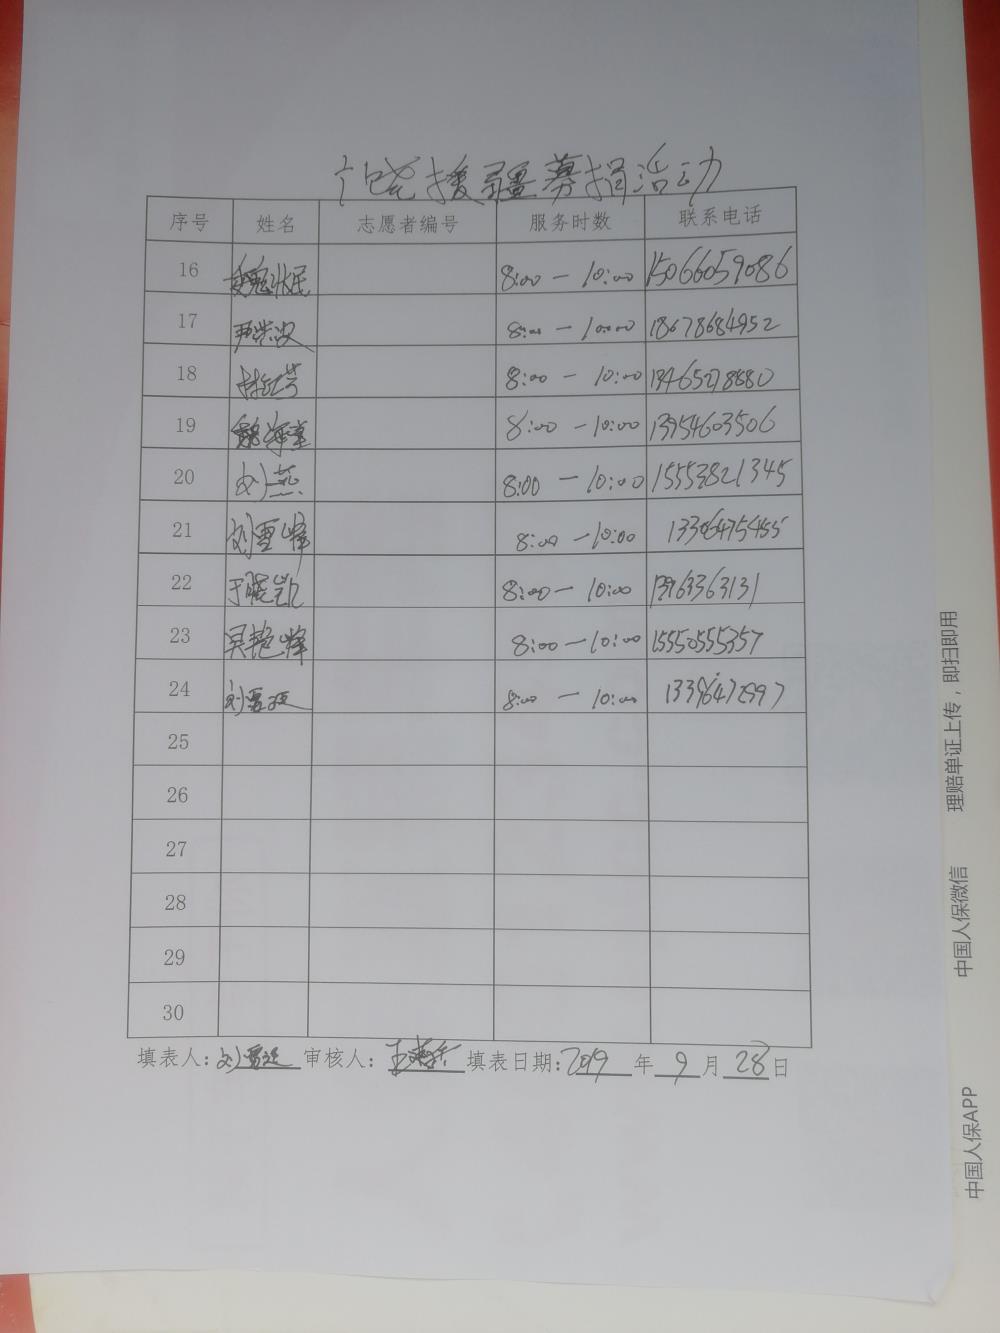 援疆募捐活动
序号 姓名 志愿者编号 服务时数 联系电话
16 8:00 — 10:00 15066059086
17 8:00 — 10:00 18678684952
18 8:00 — 10:00
19 8:00 — 10:00 13954603506
20 刘燕 8:00 — 10:00 15553821345
21 刘雪峰 8:00 — 10:00
22 于晓凯 8:00 — 10:00 13963363131
23 吴艳峰 8:00 — 10:00 15550555357
24 8:00 — 10:00
25
26
27
28
29
30
填表人: 审核人: 填表日期: 2019 年 9 月 28 日
理赔单证上传，即扫即用
中国人保微信
中国人保APP